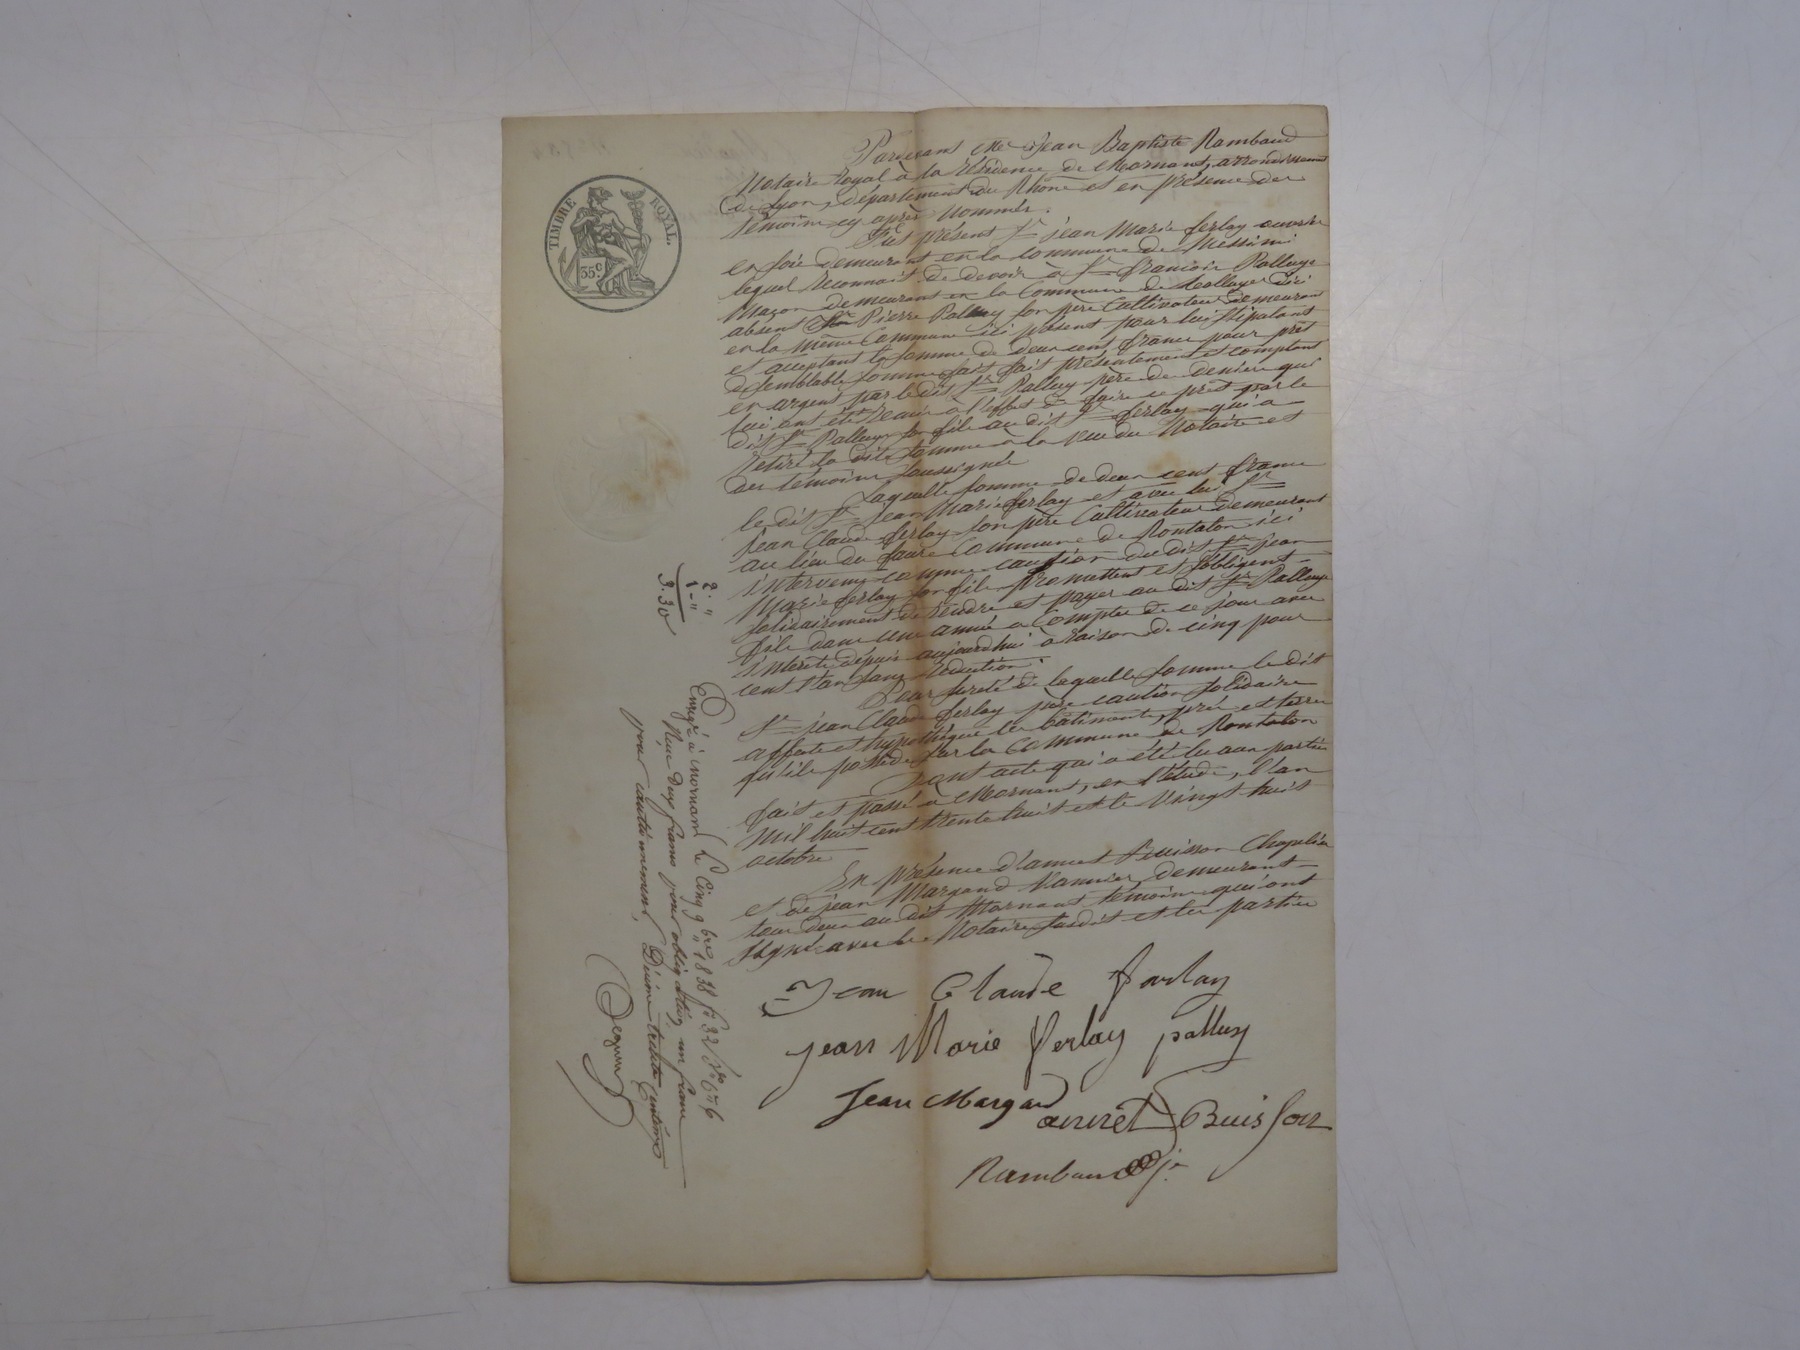 TIMBRE ROYAL.
35c
Pardevant Me Jean Baptiste Rambaud
Notaire royal à la résidence de Mornant, arrondissement
de Lyon, département du Rhône et en présence des
témoins cy après nommés.
Fut présent Sr jean Marie ferlay ouvrier
en soie demeurant en la commune de Messimi
lequel reconnait de devoir a Sr francois Palluy
Maçon demeurant en la Commune de
absent Pierre Palluy son père Cultivateur demeurant
en la même Commune ici présent pour lui stipulant
et acceptant la somme de deux cent francs pour prêt
de semblable somme fait présentement et comptant
en argent par le dit Sr Palluy père de deniers qui
lui ont été remis a l'effet de faire ce prêt par le
dit Sr Palluy son fils au dit Sr ferlay qui a
retiré la dite somme a la vue du Notaire et
des témoins soussignés
Laquelle somme de deux cent francs
le dit Sr jean Marie ferlay et avec lui Sr
jean Claude ferlay son père Cultivateur demeurant
au lieu du faure Commune de Rontalon ici
intervenu comme caution du dit Sr jean
Marie ferlay son fils promettent et s'obligent
solidairement de rendre et payer au dit Sr Palluy
fils dans une année a Compter de ce jour avec
intérêts depuis aujourdhui a raison de cinq pour
cent l'an sans réduction.
Pour sureté de laquelle somme le dit
Sr jean Claude ferlay père caution solidaire
affecte et hypothèque les bâtiments, prés et terres
qu'ils possèdent sur la Commune de Rontalon
Dont acte qui a été lu aux parties
fait et passé a Mornant, en l'étude, l'an
mil huit cent trente huit et le vingt huit
octobre
En présence d'annet Buisson Chapelier
et de jean Margand Vannier, demeurant
tous deux au dit Mornant témoins qui ont
signé avec le Notaire susdit et les parties
Jean Claude farlay
jean Marie ferlay palluy
Jean Margand
annet Buisson
Rambaud jn
2. "
1 - "
3. 30
Enregé à mornant le cinq 9bre 1838 fo 32
Reçu deux francs pour obligation, un franc
pour cautionnement, Décime trente centimes